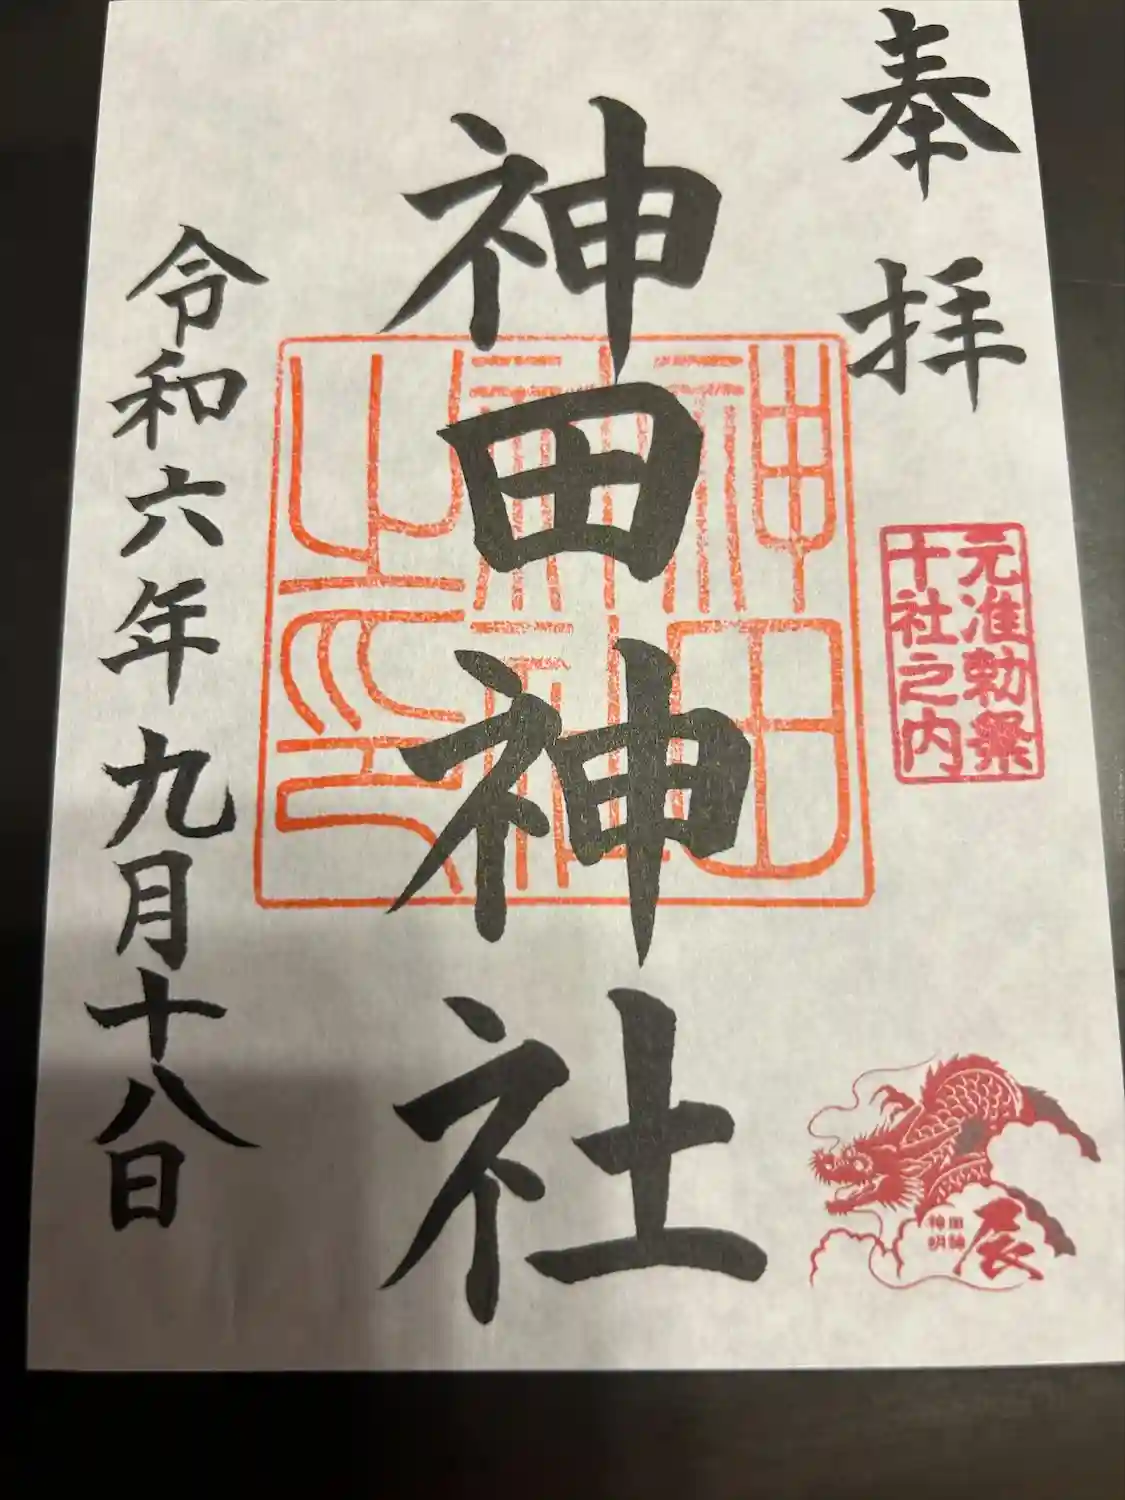 奉拝
元准勅祭
十社之内
辰
神田神社
神田
神社
之印
令和六年九月十八日